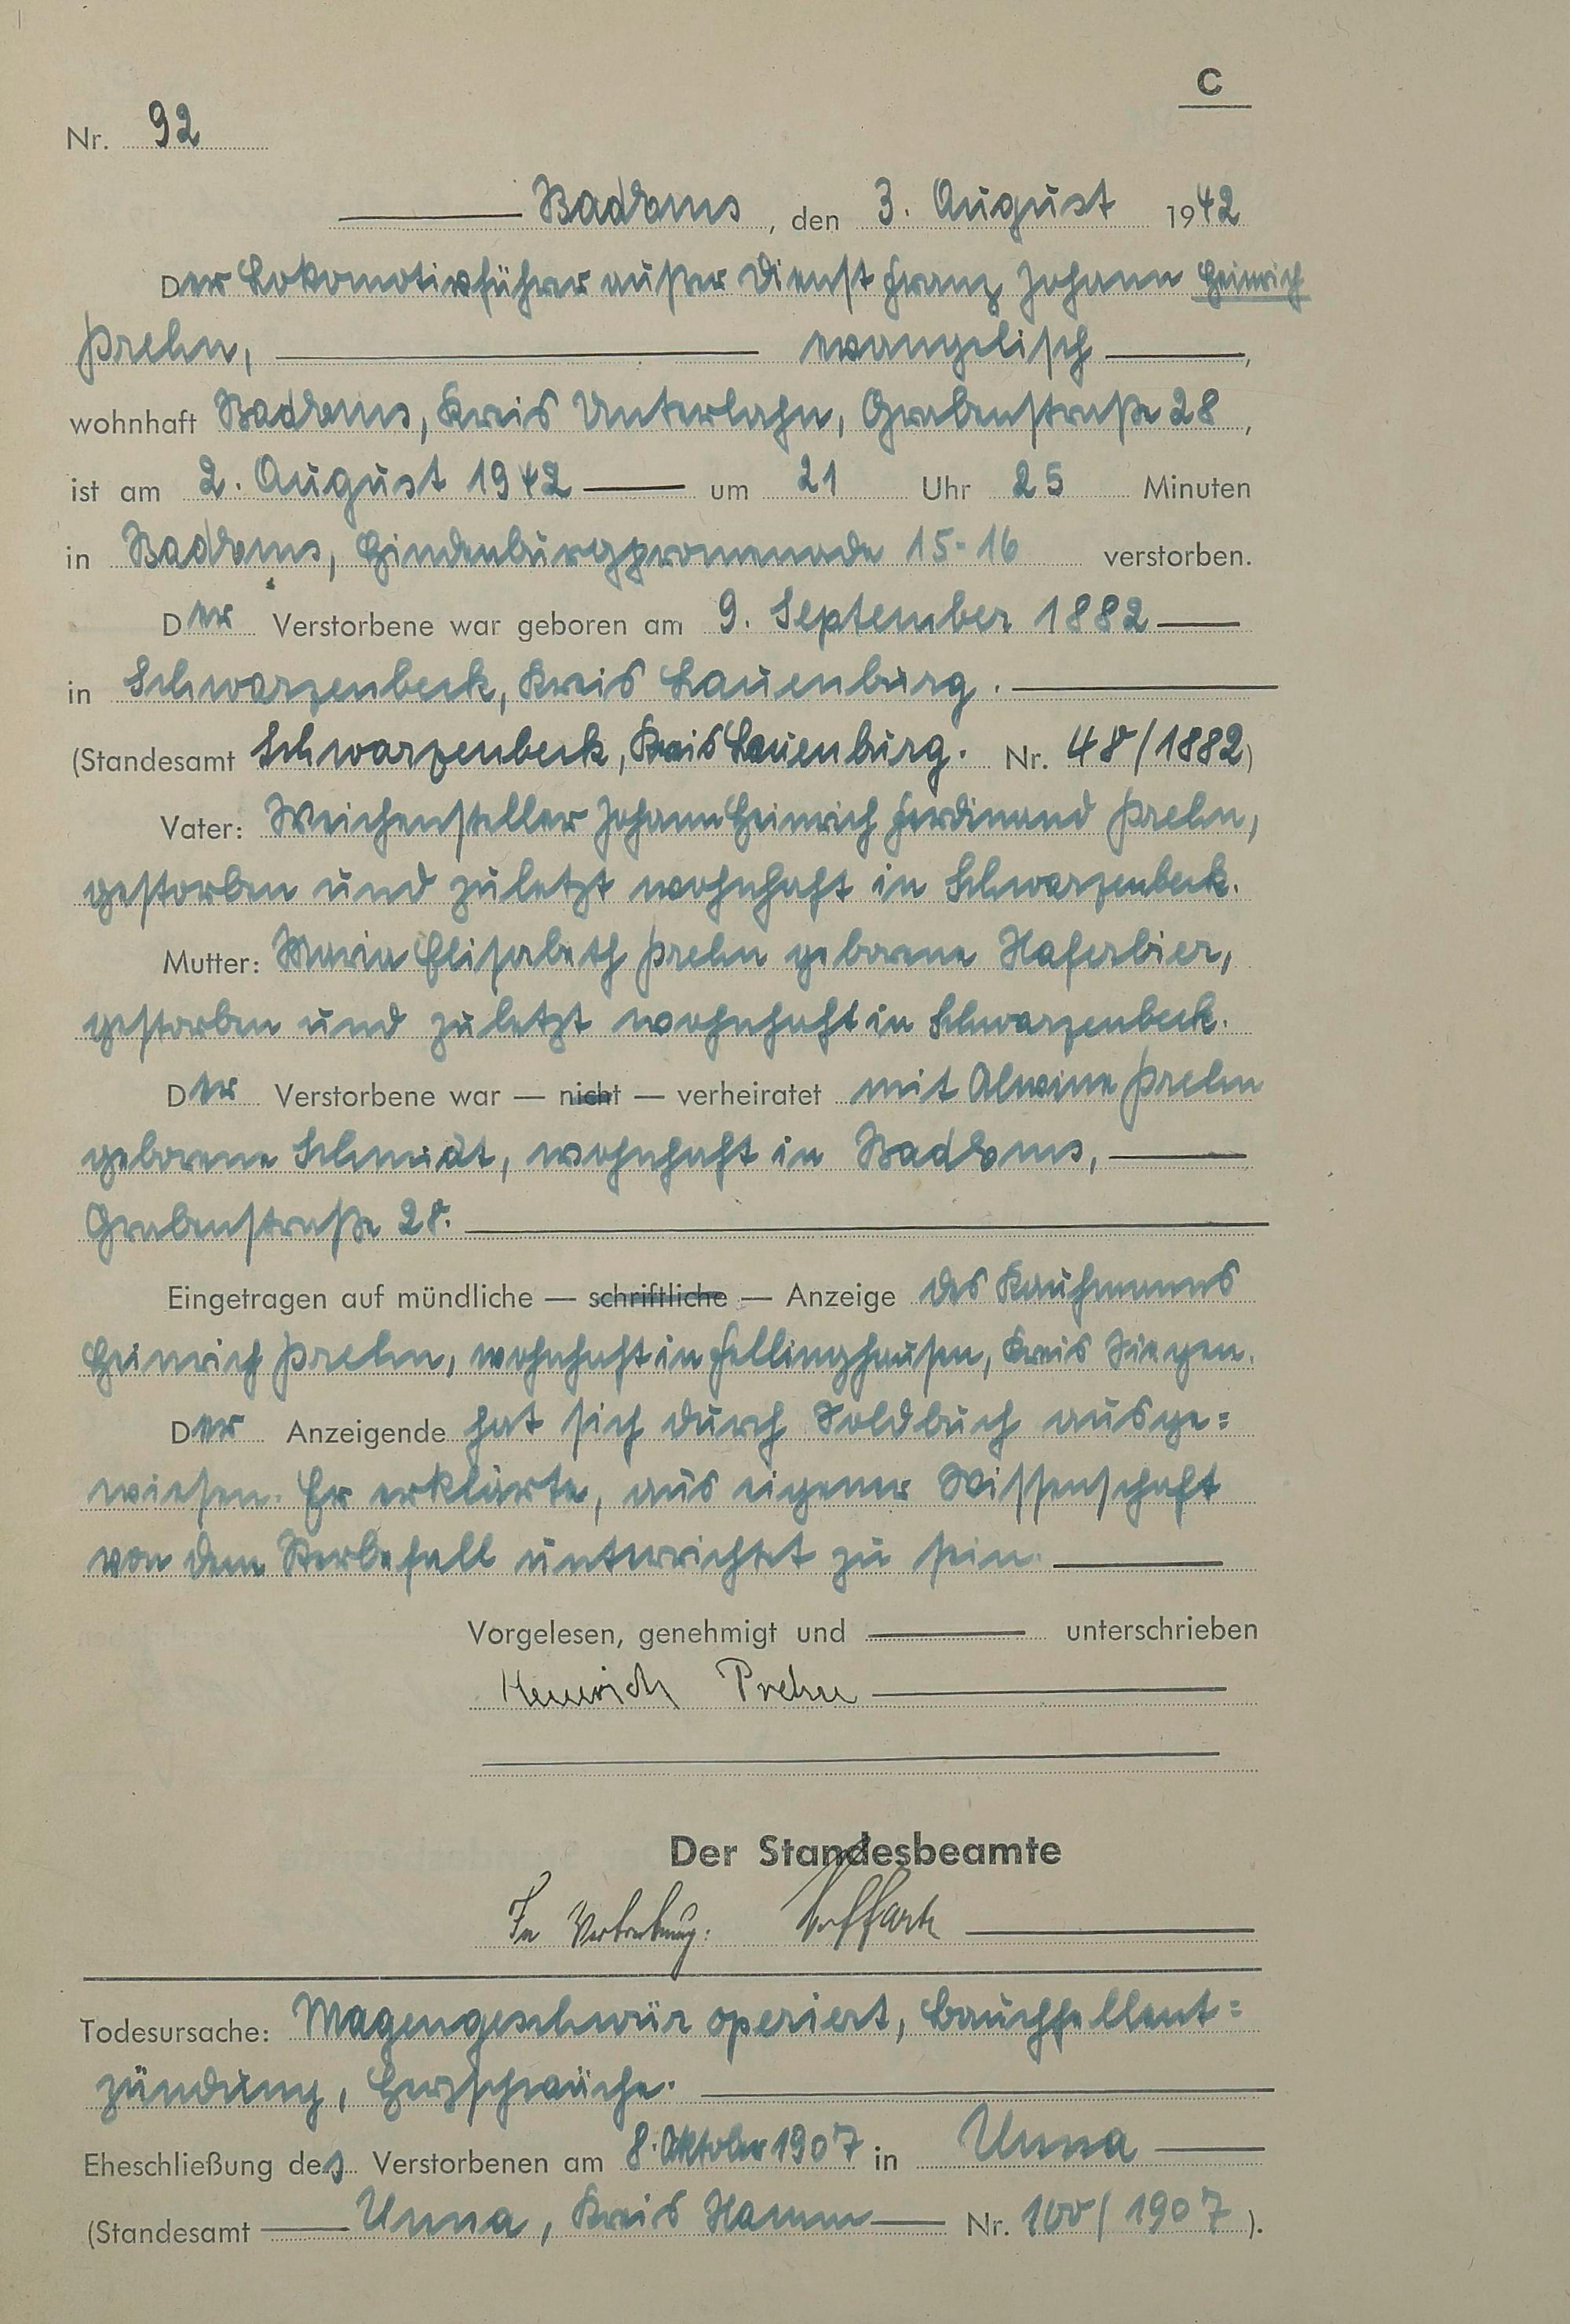 C
Nr. 92
Bad Ems, den 3. August 1942
Der Lokomotivführer außer Dienst Franz Johann Heinrich
Prehn, evangelisch,
wohnhaft Bad Ems, Kreis Unterlahn, Grabenstraße 28,
ist am 2. August 1942 um 21 Uhr 25 Minuten
in Bad Ems, Hindenburgpromenade 15-16 verstorben.
Der Verstorbene war geboren am 9. September 1882
in Schwarzenbeck, Kreis Lauenburg.
(Standesamt Schwarzenbeck, Kreis Lauenburg. Nr. 48/1882)
Vater: Weichensteller Johann Heinrich Ferdinand Prehn,
gestorben und zuletzt wohnhaft in Schwarzenbeck.
Mutter: Maria Elisabeth Prehn geborene Haferbier,
gestorben und zuletzt wohnhaft in Schwarzenbeck.
Der Verstorbene war — nicht — verheiratet mit Alwine Prehn
geborene Schmidt, wohnhaft in Bad Ems,
Grabenstraße 28.
Eingetragen auf mündliche — schriftliche — Anzeige des Kaufmanns
Heinrich Prehn, wohnhaft in Fellinghausen, Kreis Siegen.
Der Anzeigende hat sich durch Soldbuch ausge=
wiesen. Er erklärte, aus eigener Wissenschaft
von dem Sterbefall unterrichtet zu sein.
Vorgelesen, genehmigt und unterschrieben
Heinrich Prehn
Der Standesbeamte
In Vertretung:
Todesursache: Magengeschwür operiert, Bauchfellent=
zündung, Herzschwäche.
Eheschließung des Verstorbenen am 8. Oktober 1907 in Unna
(Standesamt Unna, Kreis Hamm Nr. 100/1907).